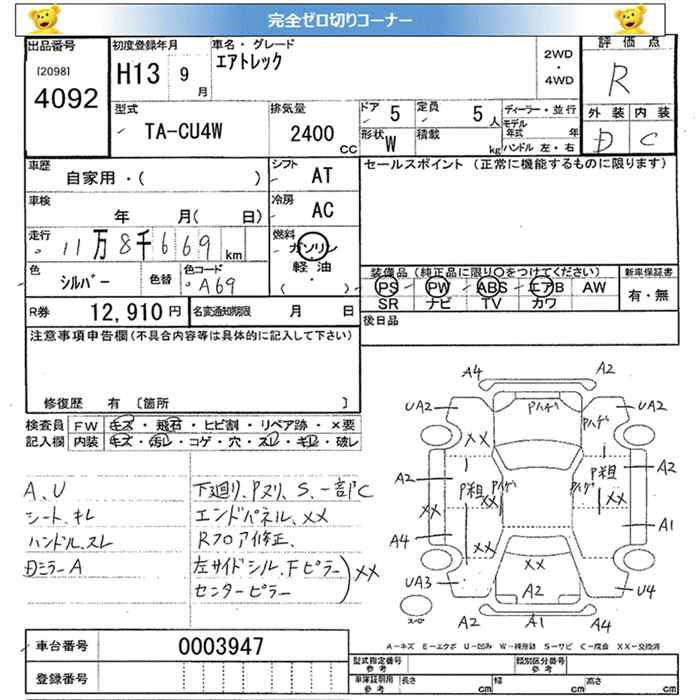 完全ゼロ切りコーナー
出品番号
[2098]
4092
初度登録年月
H13 9 月
車名・グレード
エアトレック
2WD
・
4WD
評価点
R
型式
TA-CU4W
排気量
2400 CC
ドア 5
定員 5 人
形状 W
積載 kg
ディーラー・並行
モデル年式 年
ハンドル 左・右
外装 内装
D C
車歴
自家用・( )
シフト AT
セールスポイント (正常に機能するものに限ります)
車検
年 月( 日)
冷房 AC
走行
11万8千669km
燃料
ガソリン
・
軽油
( )
色
シルバー
色替
色コード
A69
装備品 (純正品に限り○をつけてください)
PS PW ABS エアB AW
SR ナビ TV カワ
新車保証書
有・無
R券 12,910 円
名変通知期限 月 日
後日品
注意事項申告欄(不具合内容等は具体的に記入して下さい)
修復歴 有 [箇所 ]
検査員記入欄
FW キズ・飛石・ヒビ割・リペア跡・×要
内装 キズ・汚レ・コゲ・穴・スレ・キレ・破レ
A、U
シート、キレ
ハンドル、スレ
下廻り、Pヌリ、S、一部C
エンドパネル、XX
Rフロア修正、
左サイドシル、Fピラー
センターピラー
XX
A4 A2
UA2 Pハゲ Pハゲ UA2
XX
A2 P粗 Pハゲ Pハゲ P粗 A2
XX XX XX
A4 A1
XX XX
UA3 A2 U4
A2 A1 A4
A-キズ E-エクボ U-凹み W-補修跡 S-サビ C-腐食 XX-交換済
車台番号 0003947
登録番号
型式指定番号 参考
類別区分番号 参考
車庫証明用 参考
長さ cm
幅 cm
高さ cm